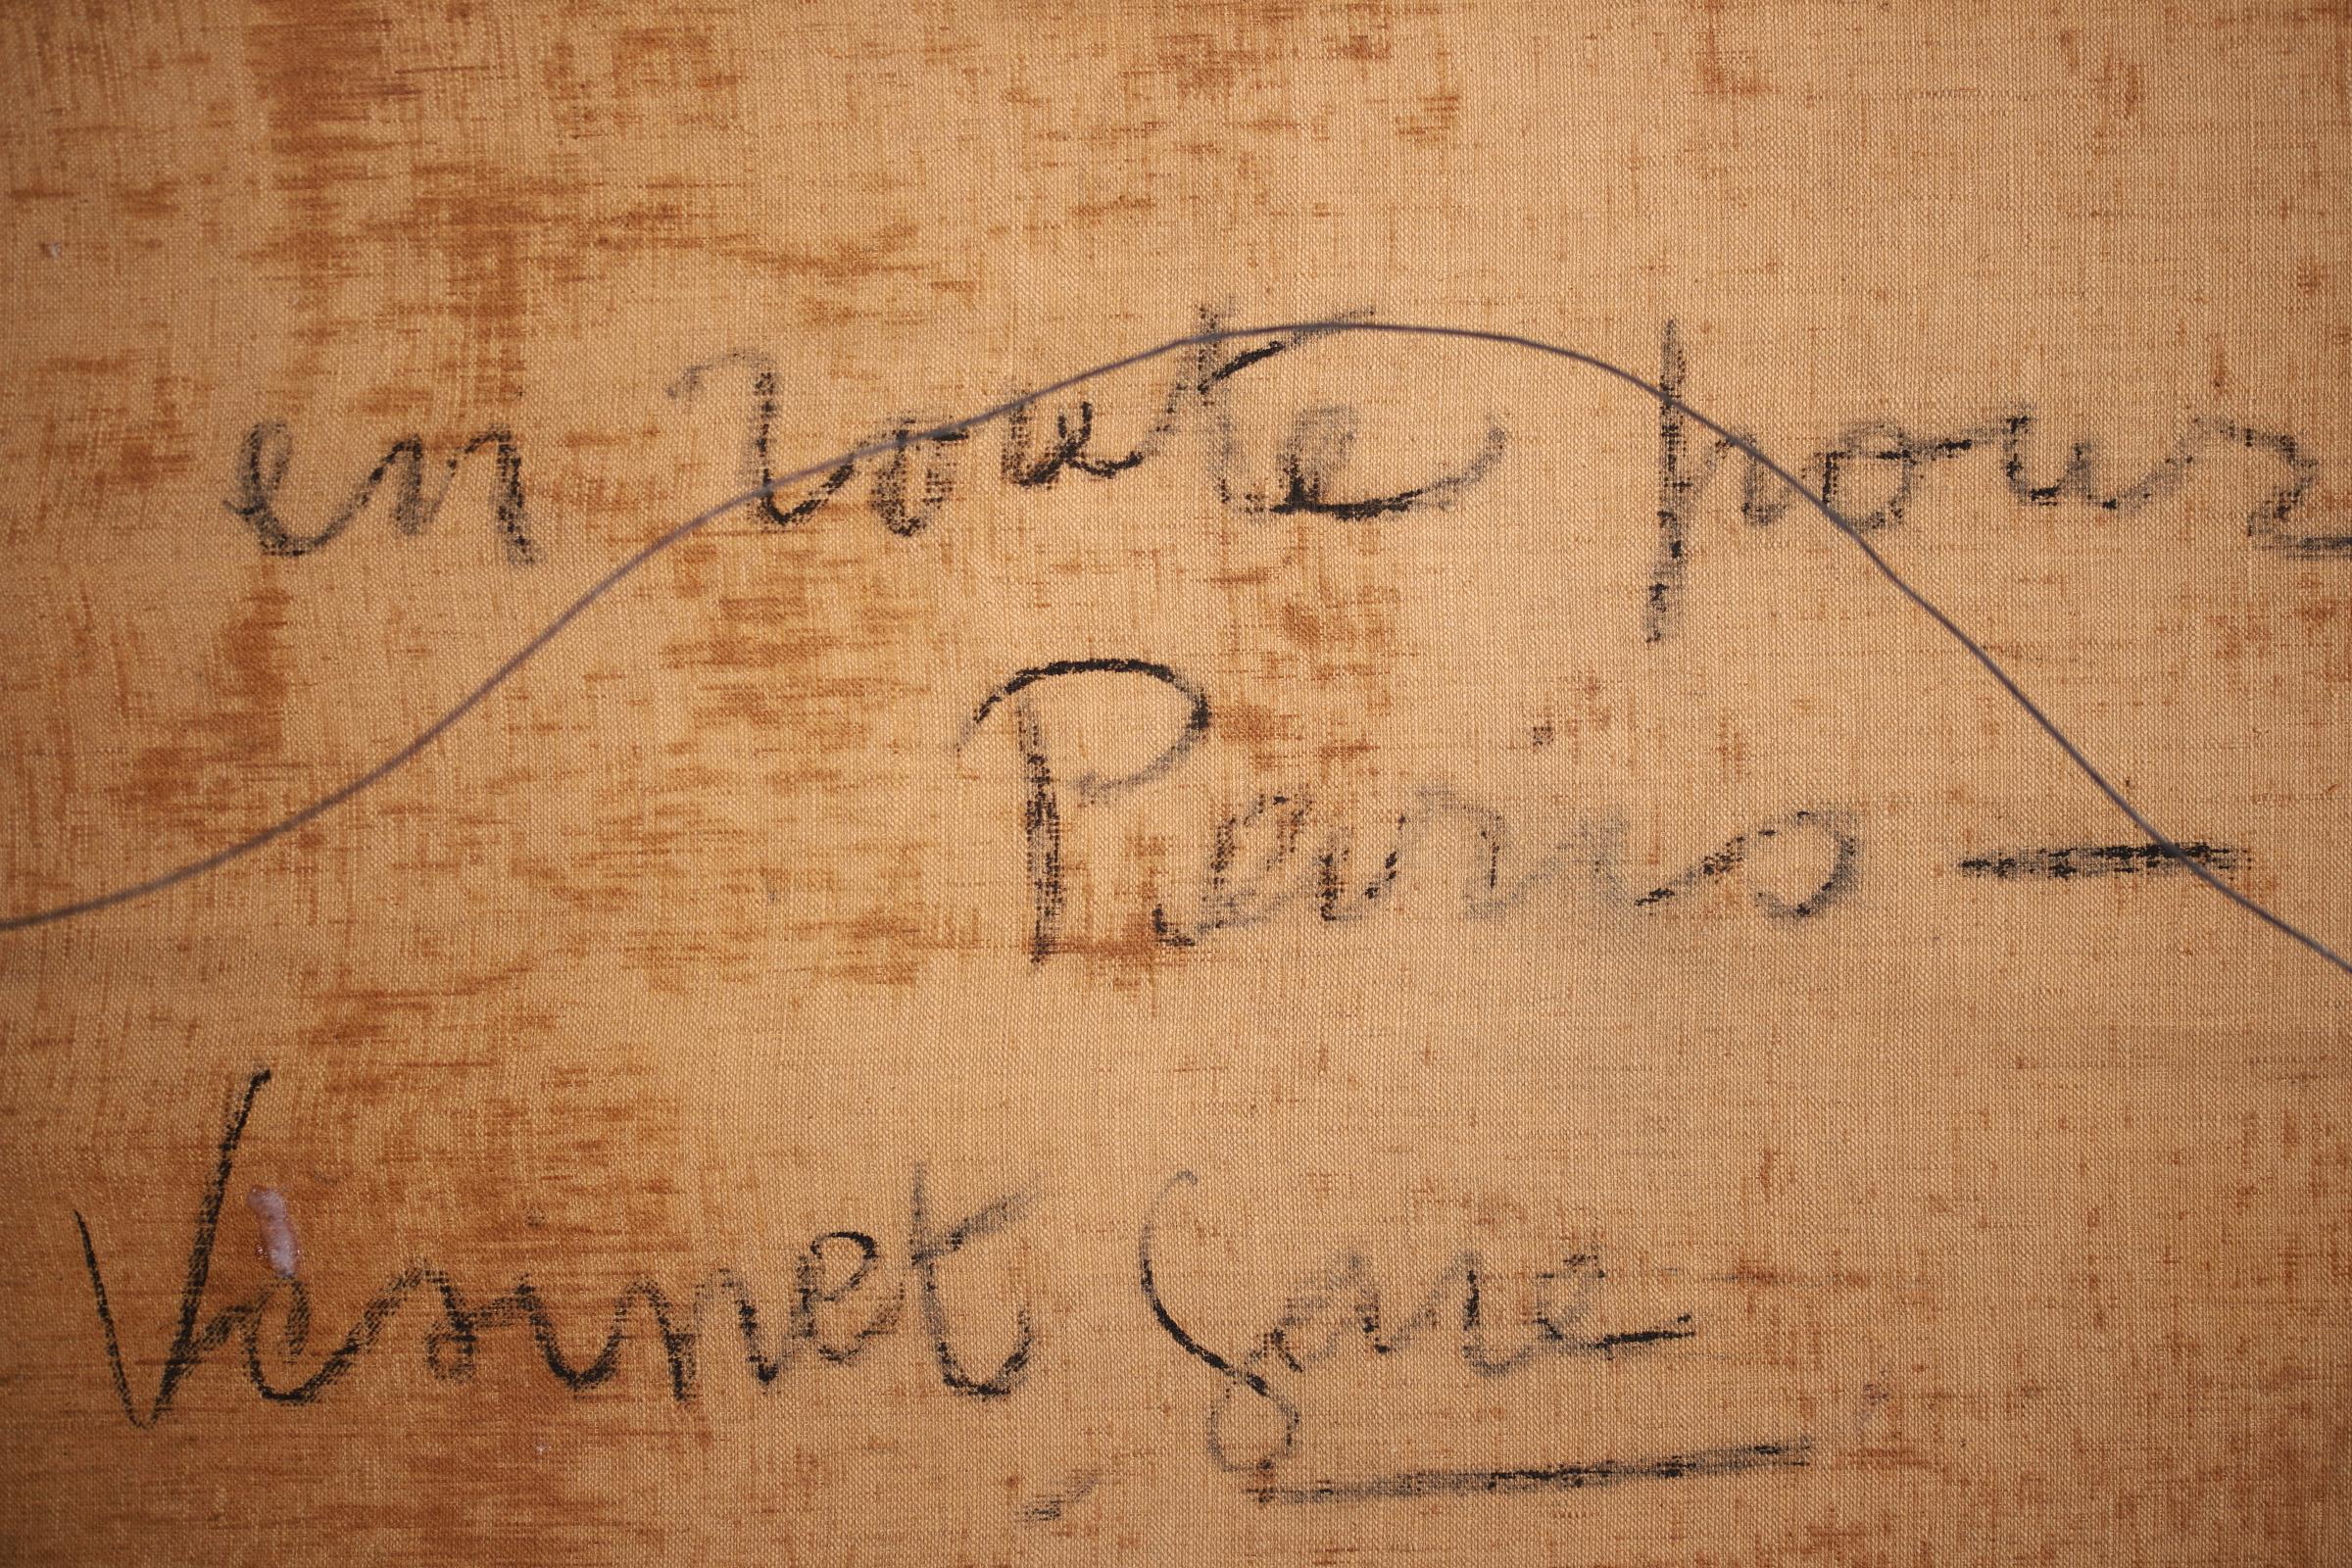 en route pour
Paris —
Vesinet Gare